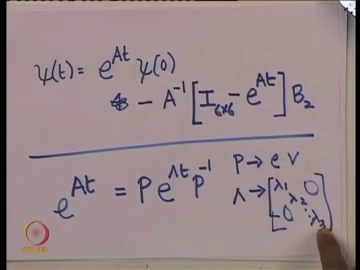 ψ(t) = e^{At} ψ(0)
- A^{-1} [I_{6×6} - e^{At}] B_2
e^{At} = P e^{λt} P^{-1}
P → e v
λ → [λ_1 0
λ_2
0 ⋱ λ_3]